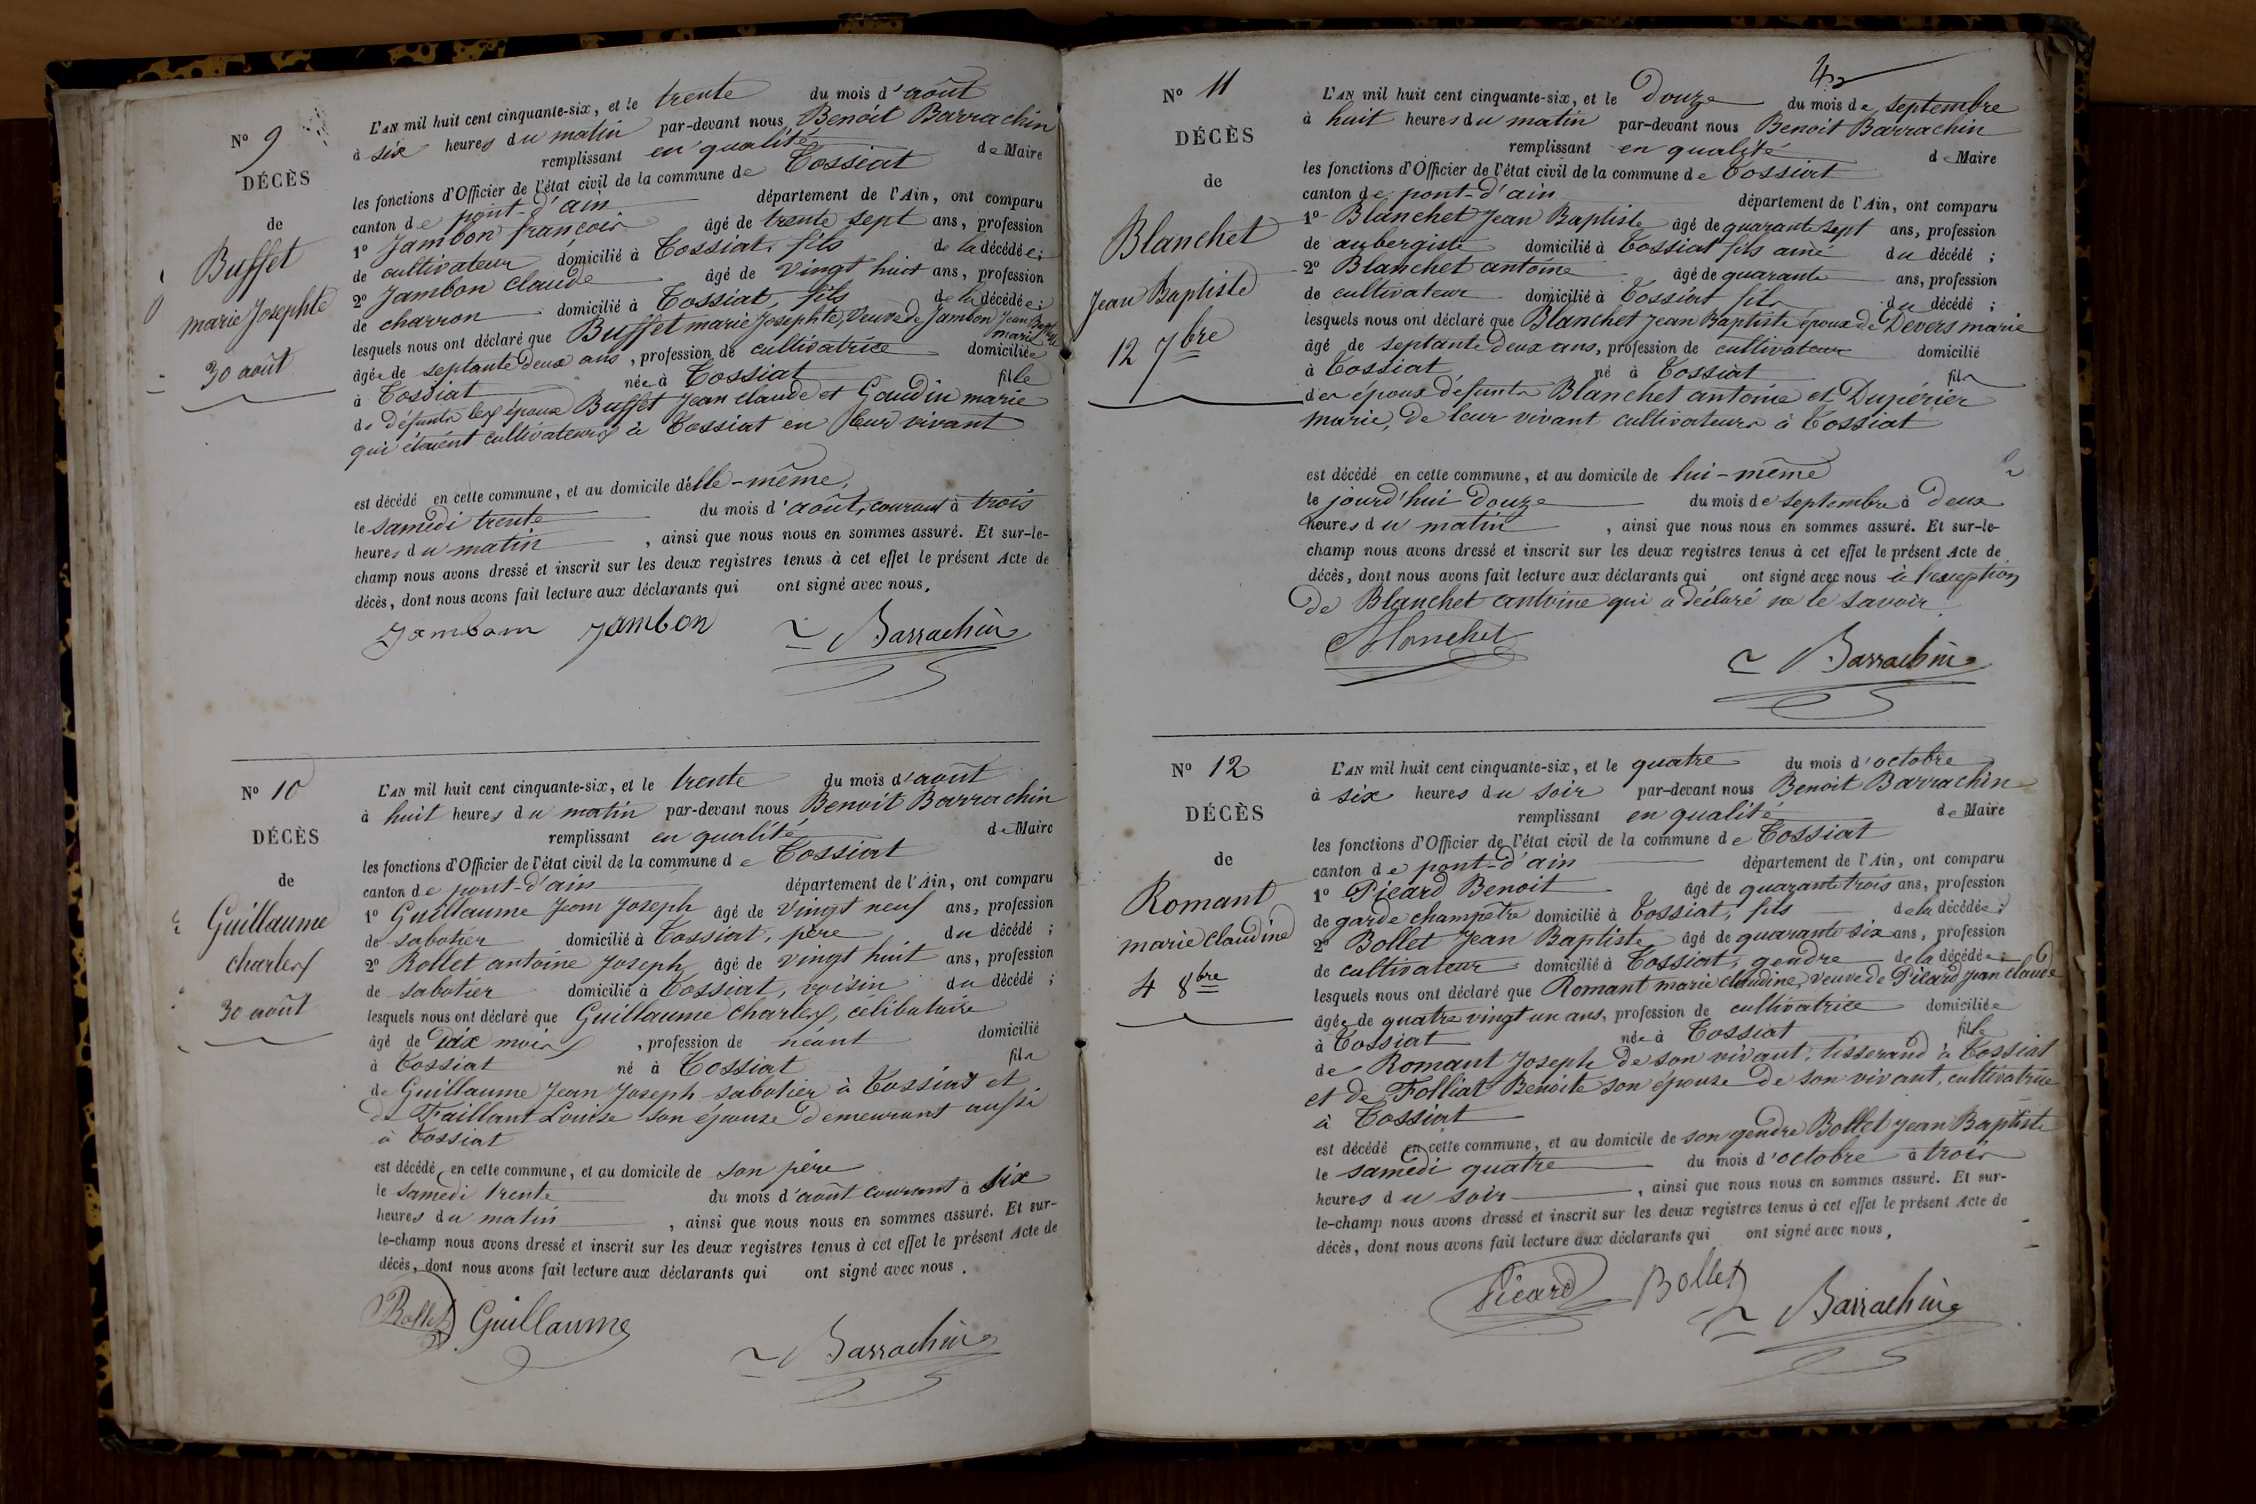 N° 9
DÉCÈS
de
Buffet
marie Josephte
30 août
L'AN mil huit cent cinquante-six, et le trente du mois d'août
à six heures du matin par-devant nous Benoit Barrachin
remplissant en qualité de Maire
les fonctions d'Officier de l'état civil de la commune de Tossiat
canton de pont-d'ain département de l'Ain, ont comparu
1° Jambon françois âgé de trente sept ans, profession
de cultivateur domicilié à Tossiat, fils de la décédée ;
2° Jambon claude âgé de vingt huit ans, profession
de charron domicilié à Tossiat, fils de la décédée ;
lesquels nous ont déclaré que Buffet marie Josephte, veuve de Jambon Jean Bapte
marie
âgée de septante deux ans, profession de cultivatrice domiciliée
à Tossiat née à Tossiat fille
de défunts les époux Buffet Jean claude et Gaudin marie
qui étaient cultivateurs à Tossiat en leur vivant
est décédé en cette commune, et au domicile d'elle-même,
le samedi trente du mois d'août, courant à trois
heures du matin, ainsi que nous nous en sommes assuré. Et sur-le-
champ nous avons dressé et inscrit sur les deux registres tenus à cet effet le présent Acte de
décès, dont nous avons fait lecture aux déclarants qui ont signé avec nous.
Jambon Jambon Barrachin
N° 10
DÉCÈS
de
Guillaume
charles
30 août
L'AN mil huit cent cinquante-six, et le trente du mois d'août
à huit heures du matin par-devant nous Benoit Barrachin
remplissant en qualité de Maire
les fonctions d'Officier de l'état civil de la commune de Tossiat
canton de pont-d'ain département de l'Ain, ont comparu
1° Guillaume Jean Joseph âgé de vingt neuf ans, profession
de sabotier domicilié à Tossiat, père du décédé ;
2° Rollet antoine Joseph âgé de vingt huit ans, profession
de sabotier domicilié à Tossiat, voisin du décédé ;
lesquels nous ont déclaré que Guillaume charles, célibataire
âgé de dix mois, profession de néant domicilié
à Tossiat né à Tossiat fils
de Guillaume Jean Joseph sabotier à Tossiat et
de Faillant Louise son épouse demeurant aussi
à Tossiat
est décédé en cette commune, et au domicile de son père
le samedi trente du mois d'août courant à six
heures du matin, ainsi que nous nous en sommes assuré. Et sur-
le-champ nous avons dressé et inscrit sur les deux registres tenus à cet effet le présent Acte de
décès, dont nous avons fait lecture aux déclarants qui ont signé avec nous.
Rollet Guillaume
Barrachin
42
N° 11
DÉCÈS
de
Blanchet
Jean Baptiste
12 7bre
L'AN mil huit cent cinquante-six, et le Douze du mois de septembre
à huit heures du matin par-devant nous Benoit Barrachin
remplissant en qualité de Maire
les fonctions d'Officier de l'état civil de la commune de Tossiat
canton de pont-d'ain département de l'Ain, ont comparu
1° Blanchet Jean Baptiste âgé de quarante sept ans, profession
de aubergiste domicilié à Tossiat fils ainé du décédé ;
2° Blanchet antoine âgé de quarante ans, profession
de cultivateur domicilié à Tossiat fils du décédé ;
lesquels nous ont déclaré que Blanchet Jean Baptiste époux de Devers marie
âgé de septante deux ans, profession de cultivateur domicilié
à Tossiat né à Tossiat fils
des époux défunts Blanchet antoine et Dupérier
marie, de leur vivant cultivateurs à Tossiat
est décédé en cette commune, et au domicile de lui-même
le jourd'hui douze du mois de septembre à deux
heures du matin, ainsi que nous nous en sommes assuré. Et sur-le-
champ nous avons dressé et inscrit sur les deux registres tenus à cet effet le présent Acte de
décès, dont nous avons fait lecture aux déclarants qui ont signé avec nous à l'exception
de Blanchet antoine qui a déclaré ne le savoir.
Blanchet
Barrachin
N° 12
DÉCÈS
de
Romant
marie claudine
4 8bre
L'AN mil huit cent cinquante-six, et le quatre du mois d'octobre
à six heures du soir par-devant nous Benoit Barrachin
remplissant en qualité de Maire
les fonctions d'Officier de l'état civil de la commune de Tossiat
canton de pont-d'ain département de l'Ain, ont comparu
1° Picard Benoit âgé de quarante trois ans, profession
de garde champêtre domicilié à Tossiat, fils de la décédée ;
2° Bollet Jean Baptiste âgé de quarante six ans, profession
de cultivateur domicilié à Tossiat, gendre de la décédée ;
lesquels nous ont déclaré que Romant marie claudine, veuve de Picard Jean claude
âgée de quatre vingt un ans, profession de cultivatrice domiciliée
à Tossiat née à Tossiat fille
de Romant Joseph de son vivant, tisserand à Tossiat
et de Folliat Benoite son épouse de son vivant, cultivatrice
à Tossiat
est décédé en cette commune, et au domicile de son gendre Bollet Jean Baptiste
le samedi quatre du mois d'octobre à trois
heures du soir, ainsi que nous nous en sommes assuré. Et sur-
le-champ nous avons dressé et inscrit sur les deux registres tenus à cet effet le présent Acte de
décès, dont nous avons fait lecture aux déclarants qui ont signé avec nous.
Picard Bollet
Barrachin